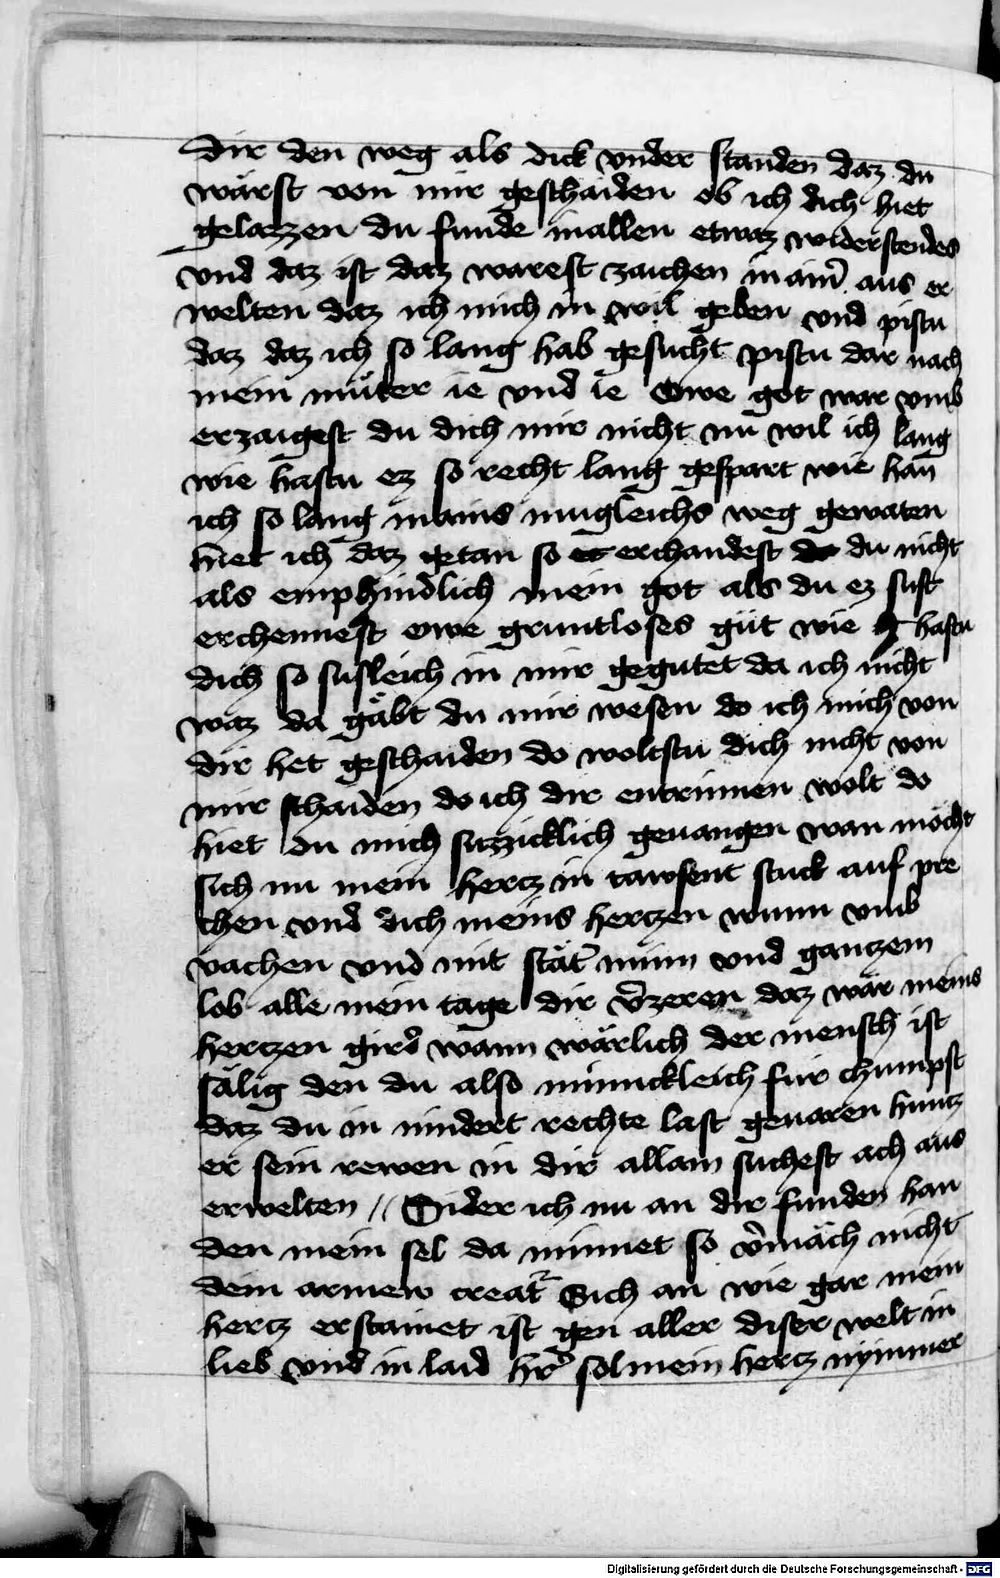 dir den weg als dick vnder standen daz du
wärst von mir geschaiden ob ich dich hiet
gelazzen du funde inallen etwaz widerstendes
vnd daz ist daz warest zaichen in aim̄ aus er
welten daz ich mich in wil geben vnd pistu
daz daz ich so lang hab gesucht pistu dar nach
mein müter ie vnd ie Owe got war vmb
erzaigest du dich mir nicht nu wil ich lang
wie hastu ez so recht lang gespart wie han
ich so lang mains mugleichs weg gewaten
hiet ich daz getan so erchandest du nicht
als emphindlich mein got als du ez sust
erchennest owe gruntloses güt wie hastu
dich so susleich in mir gegutet da ich nicht
waz da gäbt du mir wesen do ich mich von
dir het geschaiden do woltstu dich nicht von
mir schaiden do ich dir entrinnen wolt do
hiet du mich sizzicklich geuangen wan möcht
sich nu mein hercz in tawsent stuck auf pre
chen vnd dich meins herczen wunn vmb
vachen vnd mit stät̄ minn vnd ganczem
lob alle mein tage dir v̄zeren daz wär meins
herczen gird̄ wann wärlich der mensch ist
sälig den du also minnckleich für chumpst
daz du in nindert rechte last geuaren huncz
er sein rewen in dir allain suchest ach aus
erwelten // Sider ich nu an dir funden han
den mein sel da minnet so v̄mäch nicht
dein armew creat̄ Sich an wie gar mein
hercz erstainet ist gen aller diser welt in
lieb vnd in laid hr̄ sol mein hercz nymmer
Digitalisierung gefördert durch die Deutsche Forschungsgemeinschaft - DFG